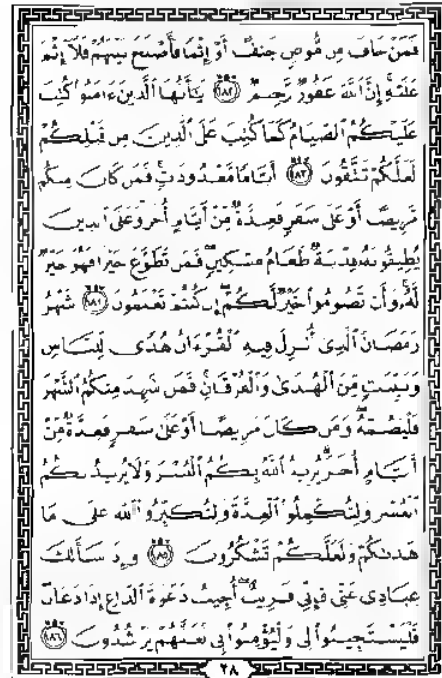 فَمَنْ خَافَ مِن مُّوصٍ جَنَفًا أَوْ إِثْمًا فَأَصْلَحَ بَيْنَهُمْ فَلَآ إِثْمَ
عَلَيْهِ إِنَّ ٱللَّهَ غَفُورٌ رَّحِيمٌ ١٨٢ يَـٰٓأَيُّهَا ٱلَّذِينَ ءَامَنُوا۟ كُتِبَ
عَلَيْكُمُ ٱلصِّيَامُ كَمَا كُتِبَ عَلَى ٱلَّذِينَ مِن قَبْلِكُمْ
لَعَلَّكُمْ تَتَّقُونَ ١٨٣ أَيَّامًا مَّعْدُودَٰتٍ فَمَن كَانَ مِنكُم
مَّرِيضًا أَوْ عَلَىٰ سَفَرٍ فَعِدَّةٌ مِّنْ أَيَّامٍ أُخَرَ وَعَلَى ٱلَّذِينَ
يُطِيقُونَهُۥ فِدْيَةٌ طَعَامُ مِسْكِينٍ فَمَن تَطَوَّعَ خَيْرًا فَهُوَ خَيْرٌ
لَّهُۥ وَأَن تَصُومُوا۟ خَيْرٌ لَّكُمْ إِن كُنتُمْ تَعْلَمُونَ ١٨٤ شَهْرُ
رَمَضَانَ ٱلَّذِىٓ أُنزِلَ فِيهِ ٱلْقُرْءَانُ هُدًى لِّلنَّاسِ
وَبَيِّنَـٰتٍ مِّنَ ٱلْهُدَىٰ وَٱلْفُرْقَانِ فَمَن شَهِدَ مِنكُمُ ٱلشَّهْرَ
فَلْيَصُمْهُ وَمَن كَانَ مَرِيضًا أَوْ عَلَىٰ سَفَرٍ فَعِدَّةٌ مِّنْ
أَيَّامٍ أُخَرَ يُرِيدُ ٱللَّهُ بِكُمُ ٱلْيُسْرَ وَلَا يُرِيدُ بِكُمُ
ٱلْعُسْرَ وَلِتُكْمِلُوا۟ ٱلْعِدَّةَ وَلِتُكَبِّرُوا۟ ٱللَّهَ عَلَىٰ مَا
هَدَىٰكُمْ وَلَعَلَّكُمْ تَشْكُرُونَ ١٨٥ وَإِذَا سَأَلَكَ
عِبَادِى عَنِّى فَإِنِّى قَرِيبٌ أُجِيبُ دَعْوَةَ ٱلدَّاعِ إِذَا دَعَانِ
فَلْيَسْتَجِيبُوا۟ لِى وَلْيُؤْمِنُوا۟ بِى لَعَلَّهُمْ يَرْشُدُونَ ١٨٦
٢٨